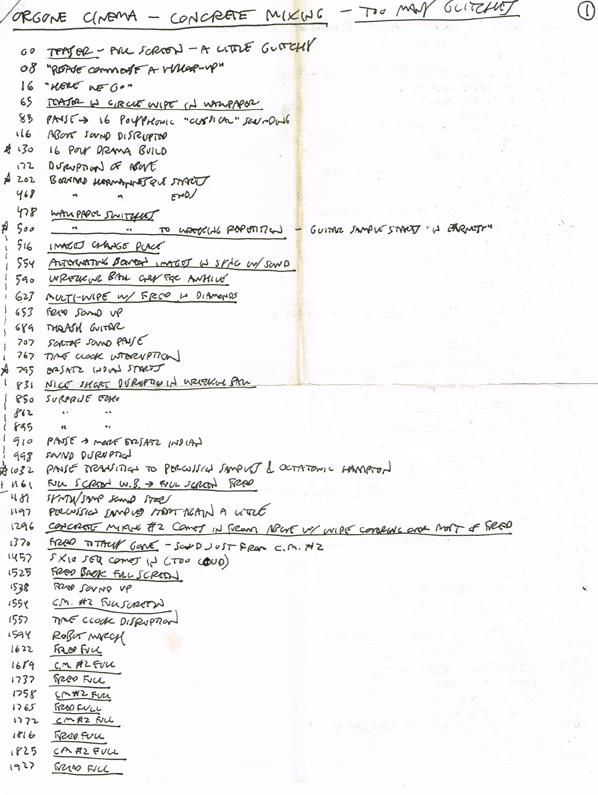 ORGONE CINEMA - CONCRETE MIXING - TOO MANY GLITCHES
1
00 TEASER - FULL SCREEN - A LITTLE GLITCHY
08 "PLEASE COMMENCE A
16 "HERE WE GO"
65 TEASER IN CIRCLE WIPE IN WALLPAPER
85 PAUSE → 16 POLYPHONIC "CLASSICAL" SOUNDING
116 ABOVE SOUND DISRUPTED
130 16 POLY DRAMA BUILD
172 DISRUPTION OF ABOVE
202 BERNARD HERMANNESQUE STARTS
468 " " ENDS
478 WALLPAPER SWITCHES
500 " " TO WRECKING REPETITION - GUITAR SAMPLE STARTS "IN EARNEST"
516 IMAGES CHANGE PLACE
554 ALTERNATING BETWEEN IMAGES IN SYNC W/ SOUND
590 WRECKING BALL ONLY FOR AWHILE
623 MULTI-WIPE W/ FRED IN DIAMONDS
653 FRED SOUND UP
689 THRASH GUITAR
707 SORT OF SOUND PAUSE
767 TIME CLOCK INTERRUPTION
795 ERSATZ INDIAN STARTS
831 NICE SHORT DISRUPTION IN WRECKING BALL
850 SURPRISE ECHO
862 " "
895 " "
910 PAUSE → MORE ERSATZ INDIAN
998 SOUND DISRUPTION
1032 PAUSE TRANSITION TO PERCUSSION SAMPLES & OCTATONIC HAMPTON
1161 FULL SCREEN W.B. → FULL SCREEN FRED
1181 SYNTH/SAMP SOUND STOPS
1197 PERCUSSION SAMPLES START AGAIN A LITTLE
1296 CONCRETE MIXING #2 COMES IN FROM ABOVE W/ WIPE COVERING OVER MOST OF FRED
1370 FRED TOTALLY GONE - SOUND JUST FROM C.M. #2
1457 5X10 SEQ COMES IN (TOO LOUD)
1525 FRED BACK FULL SCREEN
1538 FRED SOUND UP
1554 C.M. #2 FULL SCREEN
1557 TIME CLOCK DISRUPTION
1594 ROBOT MARCH
1622 FRED FULL
1689 C.M. #2 FULL
1737 FRED FULL
1758 C.M #2 FULL
1765 FRED FULL
1772 C.M #2 FULL
1816 FRED FULL
1825 C.M #2 FULL
1927 FRED FULL